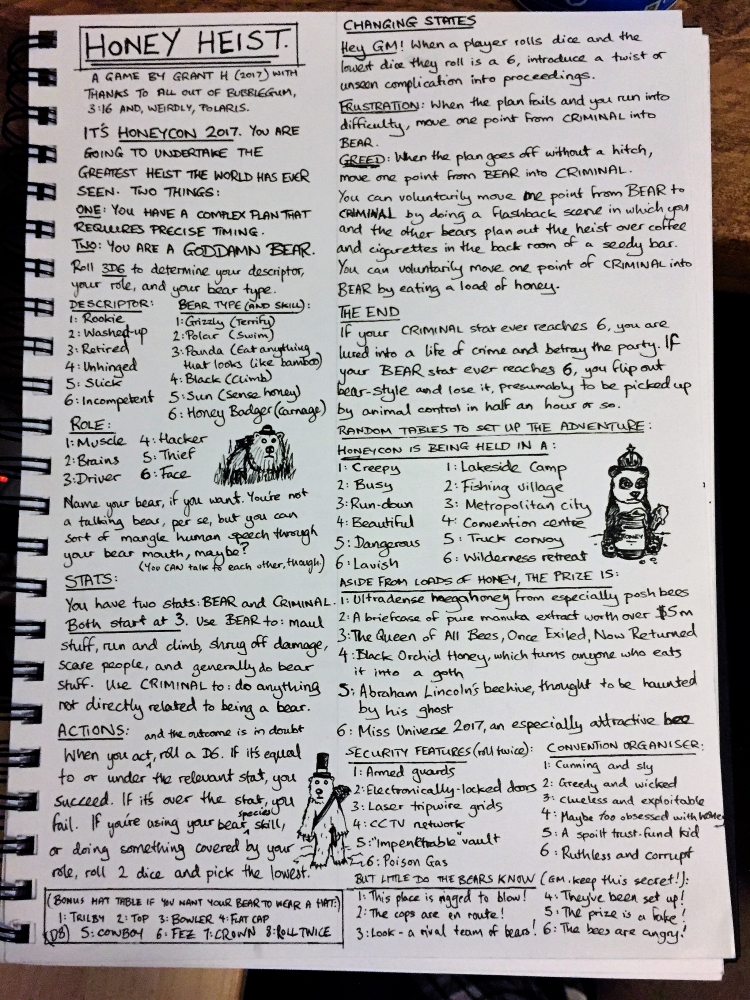 HONEY HEIST.
A GAME BY GRANT H (2017) WITH
THANKS TO ALL OUT OF BUBBLEGUM,
3:16 AND, WEIRDLY, POLARIS.
IT'S HONEYCON 2017. YOU ARE
GOING TO UNDERTAKE THE
GREATEST HEIST THE WORLD HAS EVER
SEEN. TWO THINGS:
ONE: YOU HAVE A COMPLEX PLAN THAT
REQUIRES PRECISE TIMING.
TWO: YOU ARE A GODDAMN BEAR.
Roll 3D6 to determine your descriptor,
your role, and your bear type.
DESCRIPTOR:
1: Rookie
2: Washed-up
3: Retired
4: Unhinged
5: Slick
6: Incompetent
BEAR TYPE (AND SKILL):
1: Grizzly (Terrify)
2: Polar (Swim)
3: Panda (Eat anything
that looks like bamboo)
4: Black (Climb)
5: Sun (Sense honey)
6: Honey Badger (carnage)
ROLE:
1: Muscle 4: Hacker
2: Brains 5: Thief
3: Driver 6: Face
Name your bear, if you want. You're not
a talking bear, per se, but you can
sort of mangle human speech through
your bear mouth, maybe?
(You CAN talk to each other, though.)
STATS:
You have two stats: BEAR and CRIMINAL.
Both start at 3. Use BEAR to: maul
stuff, run and climb, shrug off damage,
scare people, and generally do bear
stuff. Use CRIMINAL to: do anything
not directly related to being a bear.
ACTIONS: and the outcome is in doubt
When you act, roll a D6. If it's equal
to or under the relevant stat, you
succeed. If it's over the stat, you
species
fail. If you're using your bear skill,
or doing something covered by your
role, roll 2 dice and pick the lowest.
(BONUS HAT TABLE IF YOU WANT YOUR BEAR TO WEAR A HAT:)
1: TRILBY 2: TOP 3: BOWLER 4: FLAT CAP
(D8) 5: COWBOY 6: FEZ 7: CROWN 8: ROLL TWICE
CHANGING STATES
Hey GM! When a player rolls dice and the
lowest dice they roll is a 6, introduce a twist or
unseen complication into proceedings.
FRUSTRATION: When the plan fails and you run into
difficulty, move one point from CRIMINAL into
BEAR.
GREED: When the plan goes off without a hitch,
move one point from BEAR into CRIMINAL.
You can voluntarily move one point from BEAR to
CRIMINAL by doing a flashback scene in which you
and the other bears plan out the heist over coffee
and cigarettes in the back room of a seedy bar.
You can voluntarily move one point of CRIMINAL into
BEAR by eating a load of honey.
THE END
If your CRIMINAL stat ever reaches 6, you are
lured into a life of crime and betray the party. If
your BEAR stat ever reaches 6, you flip out
bear-style and lose it, presumably to be picked up
by animal control in half an hour or so.
RANDOM TABLES TO SET UP THE ADVENTURE:
HONEYCON IS BEING HELD IN A:
1: Creepy 1: Lakeside Camp
2: Busy 2: Fishing village
3: Run-down 3: Metropolitan city
4: Beautiful 4: Convention centre
5: Dangerous 5: Truck convoy
6: Lavish 6: Wilderness retreat
HONEY
ASIDE FROM LOADS OF HONEY, THE PRIZE IS:
1: Ultradense megahoney from especially posh bees
2: A briefcase of pure manuka extract worth over $5m
3: The Queen of All Bees, Once Exiled, Now Returned
4: Black Orchid Honey, which turns anyone who eats
it into a goth
5: Abraham Lincoln's beehive, thought to be haunted
by his ghost
6: Miss Universe 2017, an especially attractive bee
SECURITY FEATURES (roll twice):
1: Armed guards
2: Electronically-locked doors
3: Laser tripwire grids
4: CCTV network
5: "Impenetrable" vault
6: Poison Gas
CONVENTION ORGANISER:
1: Cunning and sly
2: Greedy and wicked
3: Clueless and exploitable
4: Maybe too obsessed with honey
5: A spoilt trust-fund kid
6: Ruthless and corrupt
BUT LITTLE DO THE BEARS KNOW (GM, keep this secret!):
1: This place is rigged to blow! 4: They've been set up!
2: The cops are en route! 5: The prize is a fake!
3: Look - a rival team of bears! 6: The bees are angry!